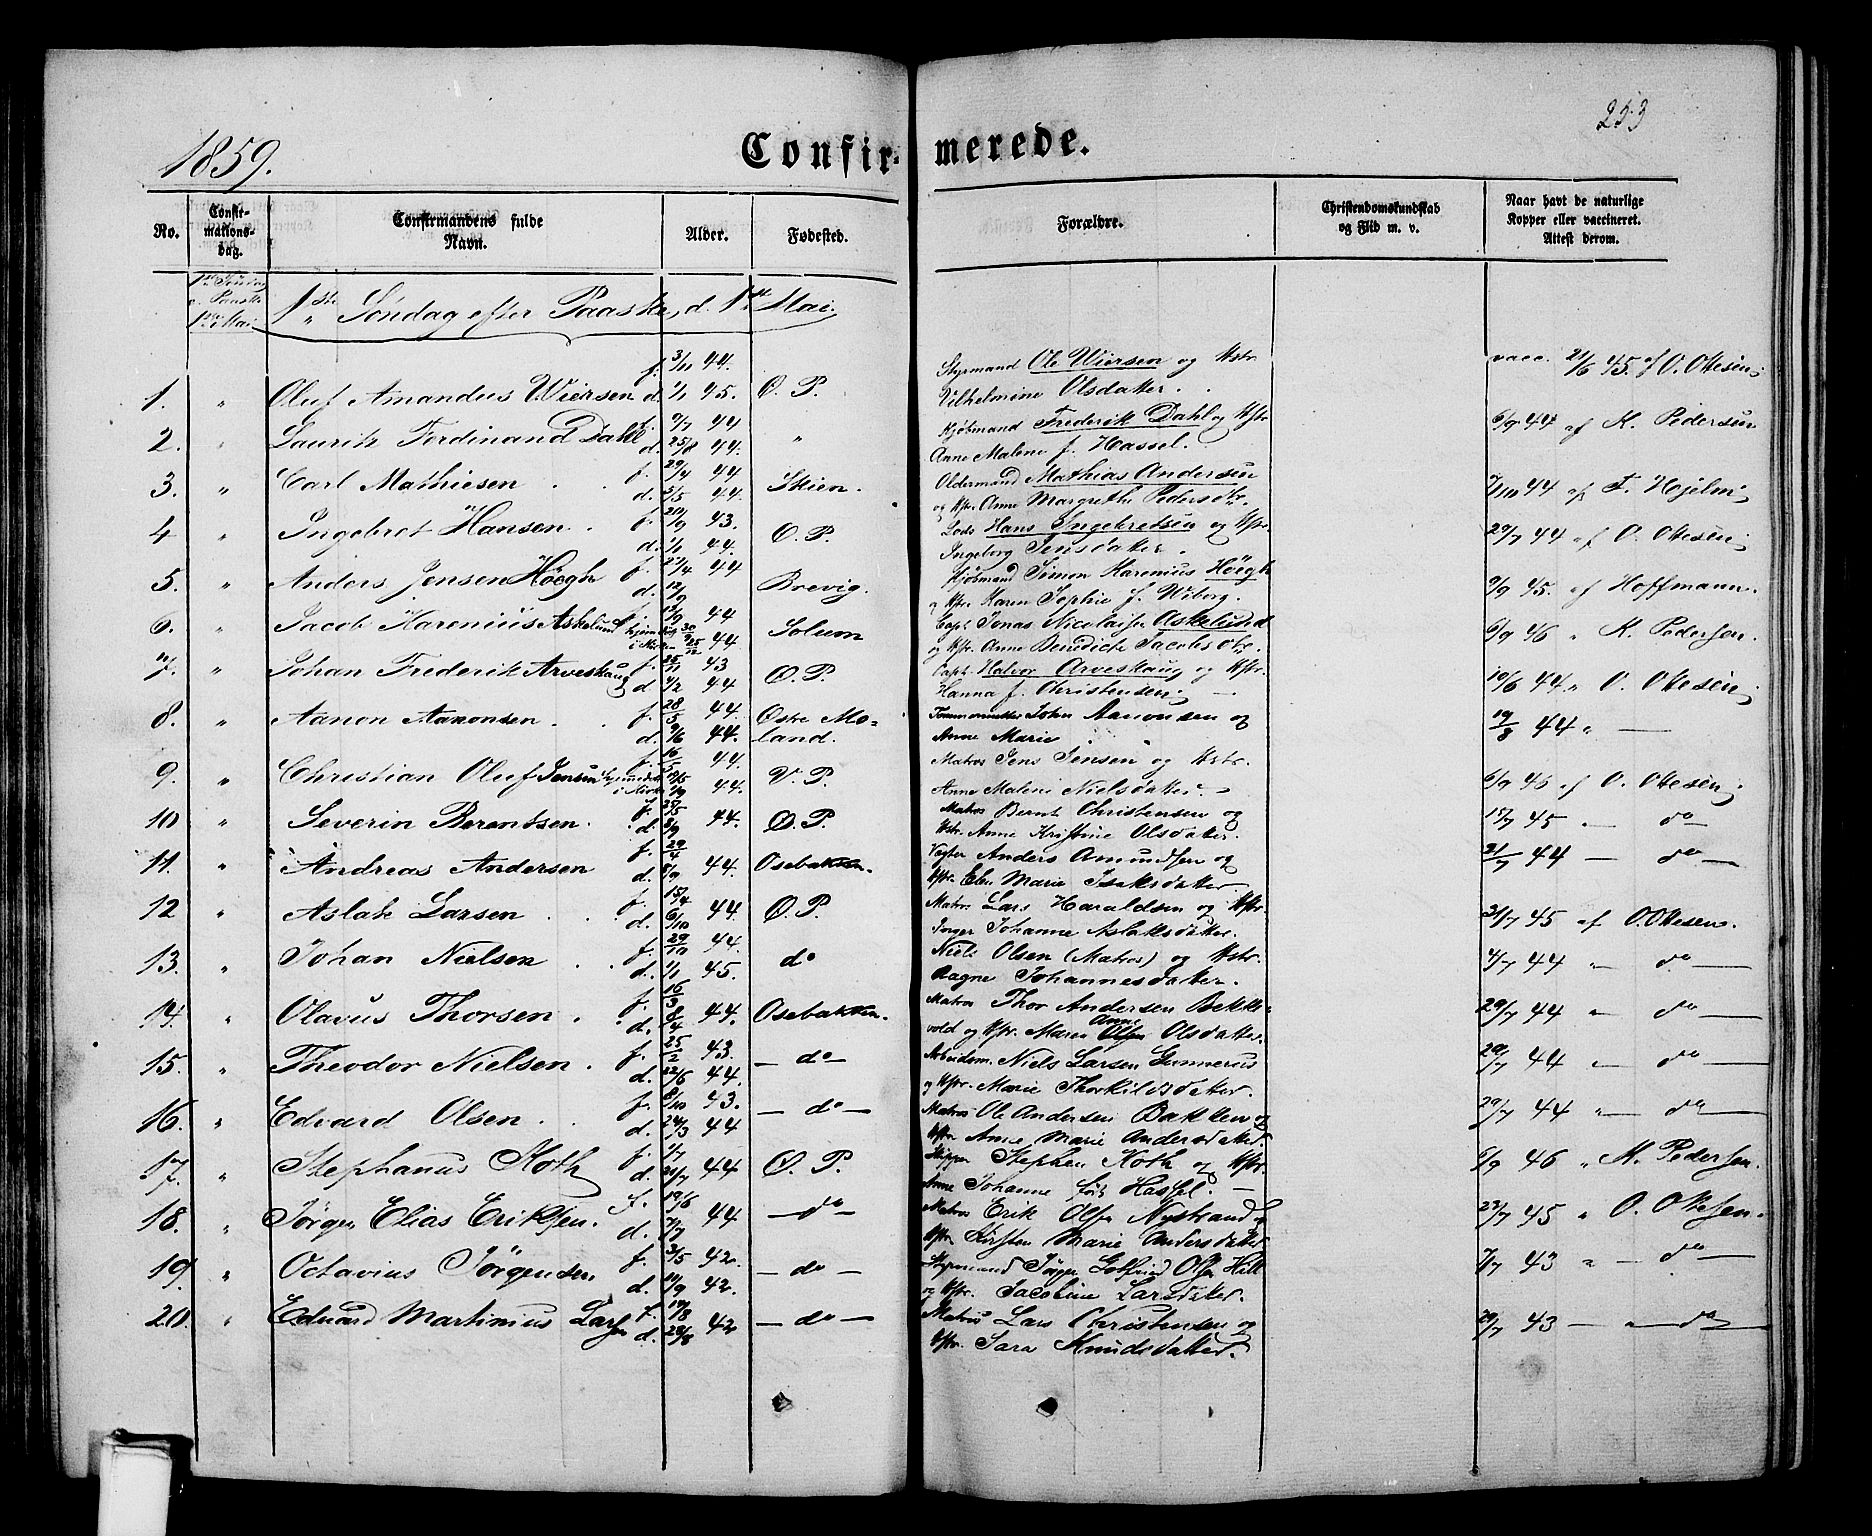 253
1859.
Confir-
merede.
No.
Confir-
mations-
dag.
Confirmandens fulde
Navn.
Alder.
Fødested.
Forældre.
Christendomskundskab
og Flid m. v.
Naar havt de naturlige
Kopper eller vaccineret.
Attest derom.
1ste Søndag efter Paaske, d. 1ste Mai.
1. " Oluf Amandus Wiersen f. 3/11 44. d. 1/1 45. Ø. P. Styrmand Ole Wiersen og Hstr. Vilhelmine Olsdatter. vacc. 21/6 45. af O. Ottesen
2. " Lauritz Ferdinand Dahl f. 9/7 44 d. 25/8 44. " Kjøbmand Frederik Dahl og Hstr. Anne Malene f. Hassel. 6/9 44 af K. Pedersen
3. " Carl Mathiesen f. 29/4 44 d. 3/5 44. Skien. Oldermand Mathias Andersen og Hstr. Anne Margrethe Pedersdtr. 7/10 44 af F. Hjelm
4 " Ingebret Hansen f. 20/9 43. d. 1/1 44. Ø. P. Lods Hans Ingebretsen og Hstr. Ingeborg Jensdatter. 29/7 44 af O. Ottesen
5. " Anders Jensen Höegh f. 27/4 44 d. 12/9 Brevig. Kjøbmand Simon Karenius Höegh og Hstr. Karen Sophie f. Wiborg. 9/9 45. af Hoffmann.
6. " Jacob Karenius Askelund f. 13/9 44 Solum Capt. Jonas Nicolaisen Askelund og Hstr. Anne Benedicte Jacobsdtr. 6/9 46 " K. Pedersen.
7. " Johan Frederik Arveskaug f. 25/11 43 d. 4/2 44 Ø. P. Capt. Halvor Arveskaug og Hstr. Hanna f. Christensen 10/6 44 " O. Ottesen
8. " Aanon Aanonsen f. 28/5 44. d. 9/6 44. Østre Moland. Tømmermand John Aanonsen og Anne Marie 19/8 44 "
9. " Christian Oluf Jensen f. 16/5 44. 44. V. P. Matros Jens Jensen og Hstr. Anne Malene Nielsdatter. 6/9 46 af O. Ottesen
10 " Severin Berentsen. f. 25/5 d. 8/9 44. Ø. P. Matros Bernt Christensen og Hstr. Anne Kristine Olsdatter. 15/7 45 do
11. " Andreas Andersen f. 29/4 d. 8/9 44. Osebakken. Vægter Anders Amundsen og Hstr. Elen Marie Isaksdatter. 21/7 44 do
12 " Aslak Larsen f. 15/4 d. 6/10 44. Ø. P. Matros Lars Haraldsen og Hstr. Inger Johanne Aslaksdatter. 31/7 45 af O. Ottesen.
13. " Johan Nielsen f. 29/10 44. d. 1/1 45. do Niels Olsen (Matros) og Hstr. Aagne Johannesdatter. 4/7 44 do
14. " Olavus Thorsen f. 16/3 d. 8/4 44. Osebakken. Matros Thor Andersen Bekkevold og Hstr. Maren Anne Olsdatter. 29/7 44 " do
15. " Theodor Nielsen f. 25/2 43. d. 22/6 44. do Arbeidsm. Niels Larsen Gunnerus og Hstr. Marie Thorkildsdatter. 29/7 44 do
16. " Edvard Olsen. f. 8/10 43. d. 24/3 44 do Matros Ole Andersen Bakken og Hstr. Anne Marie Andersdatter. 29/7 44 " do
17. " Stephanus Koth f. 1/7 d. 21/7 44 Ø. P. Skipper Stephen Koth og Hstr. Anne Johanne født Hassel. 6/9 46 " K. Pedersen.
18. " Jørgen Elias Eriksen. f. 19/6 d. 7/7 44 do Matros Erik Olsen Nystrand og Hstr. Kirsten Marie Andersdatter 22/7 45 " O. Ottesen.
19. " Octavius Jørgensen f. 3/5 42. d. 10/9 42. do Styrmand Jørgen Gotfried Olsen Hill og Hstr. Jacobine Larsdatter. 7/7 43 " do
20. " Eduard Martinius Larsen f. 19/8 d. 28/8 42 do Matros Lars Christensen og Hstr. Sara Knudsdatter. 20/7 43 do